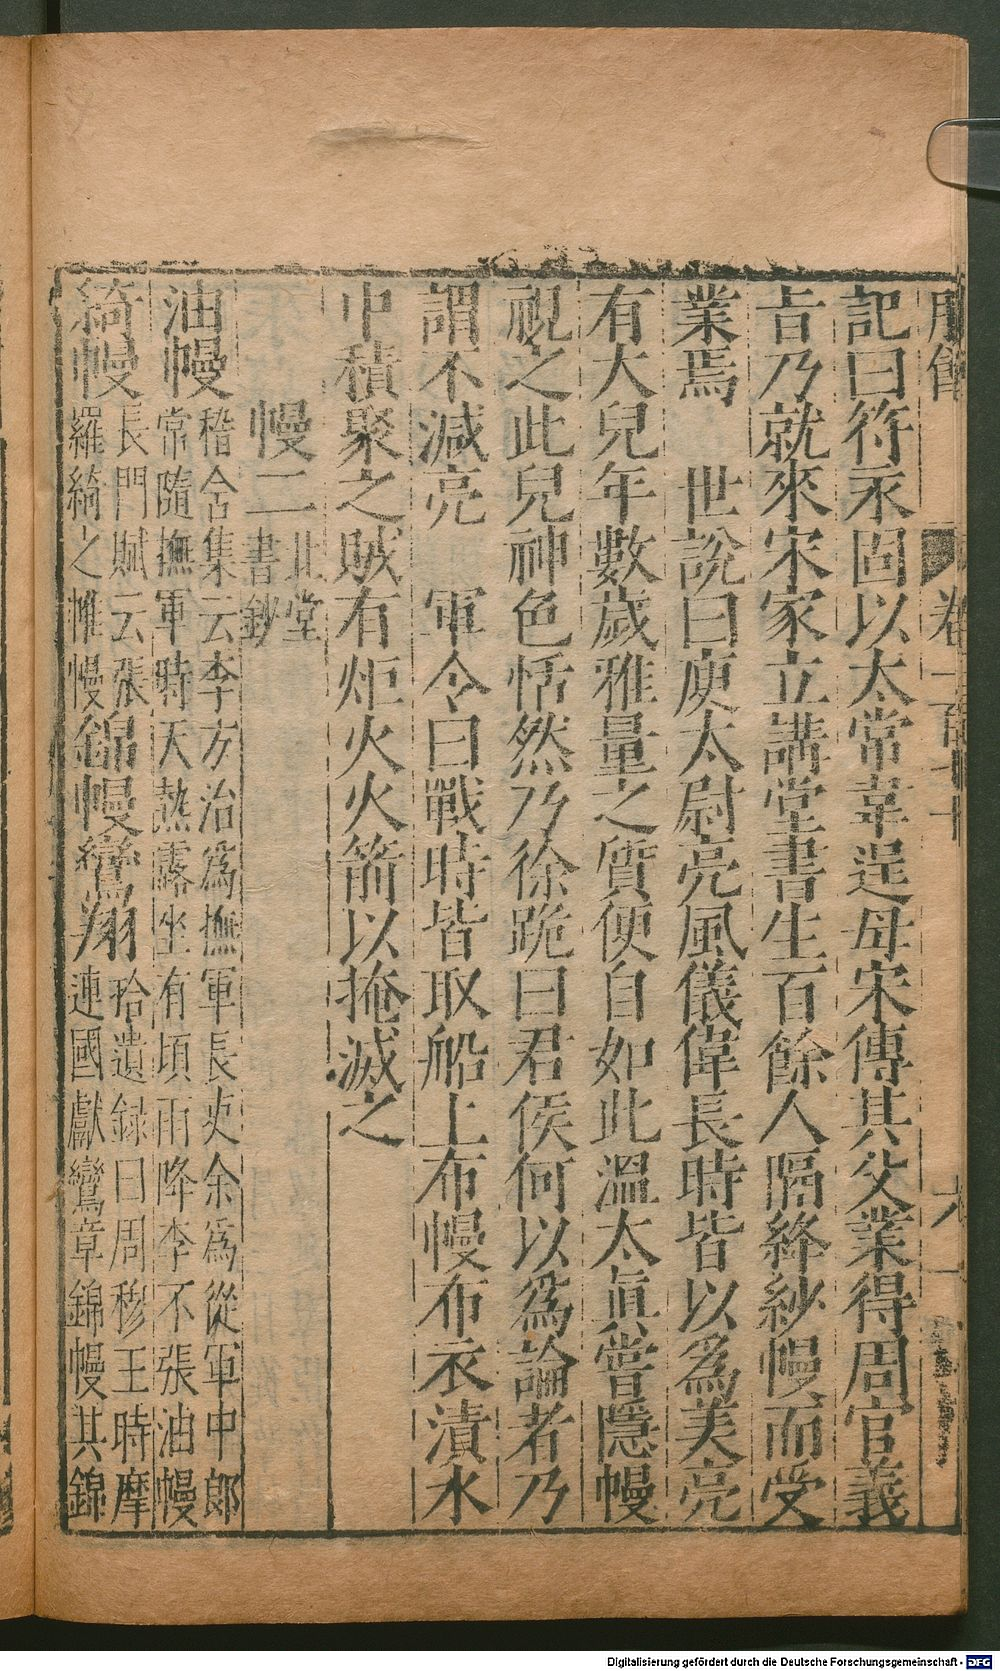 記曰符永固以太常韋逞母宋傳其父業得周官義
㫖乃就來宋家立講堂書生百餘人隔絳紗幔而受
業焉　世説曰庾太尉亮風儀偉長時皆以爲美亮
有大兒年數歲雅量之質便自如此溫太眞嘗隱幔
視之此兒神色恬然乃徐跪曰君侯何以爲論者乃
謂不減亮　軍令曰戰時皆取船上布幔布衣漬水
中積聚之賊有炬火火箭以掩滅之
幔二北堂書鈔
油幔嵇含集云李方治爲撫軍長史余爲從軍中郎
常隨撫軍時天熱露坐有頃雨降李不張油幔
綺幔長門賦云張羅綺之帷幔錦幔鸞翔拾遺録曰周穆王時摩連國獻鸞章錦幔其錦
卷一百
六一
Digitalisierung gefördert durch die Deutsche Forschungsgemeinschaft - DFG